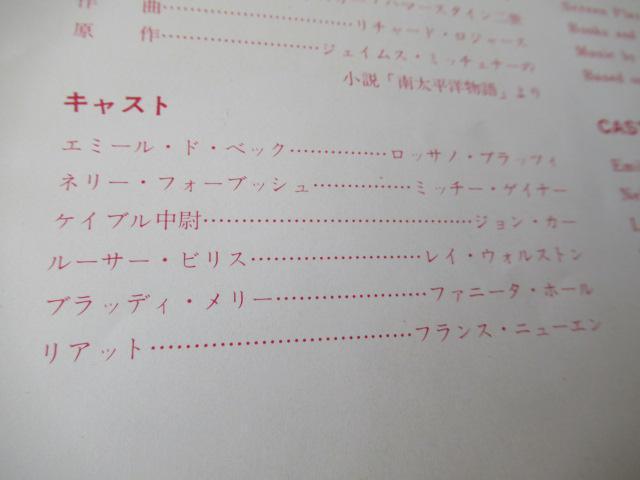 作　曲……………リチャード・ロジャース
原　作……………ジェイムス・ミッチェナーの
小説「南太平洋物語」より
キャスト
エミール・ド・ベック……………ロッサノ・ブラッツィ
ネリー・フォーブッシュ……………ミッチー・ゲイナー
ケイブル中尉……………………………………ジョン・カー
ルーサー・ビリス………………………レイ・ウォルストン
ブラッディ・メリー……………………ファニータ・ホール
リアット……………………………………フランス・ニューエン
Screen Pla
Books and
Music by
Based o
CAS
Emi
Ne
L